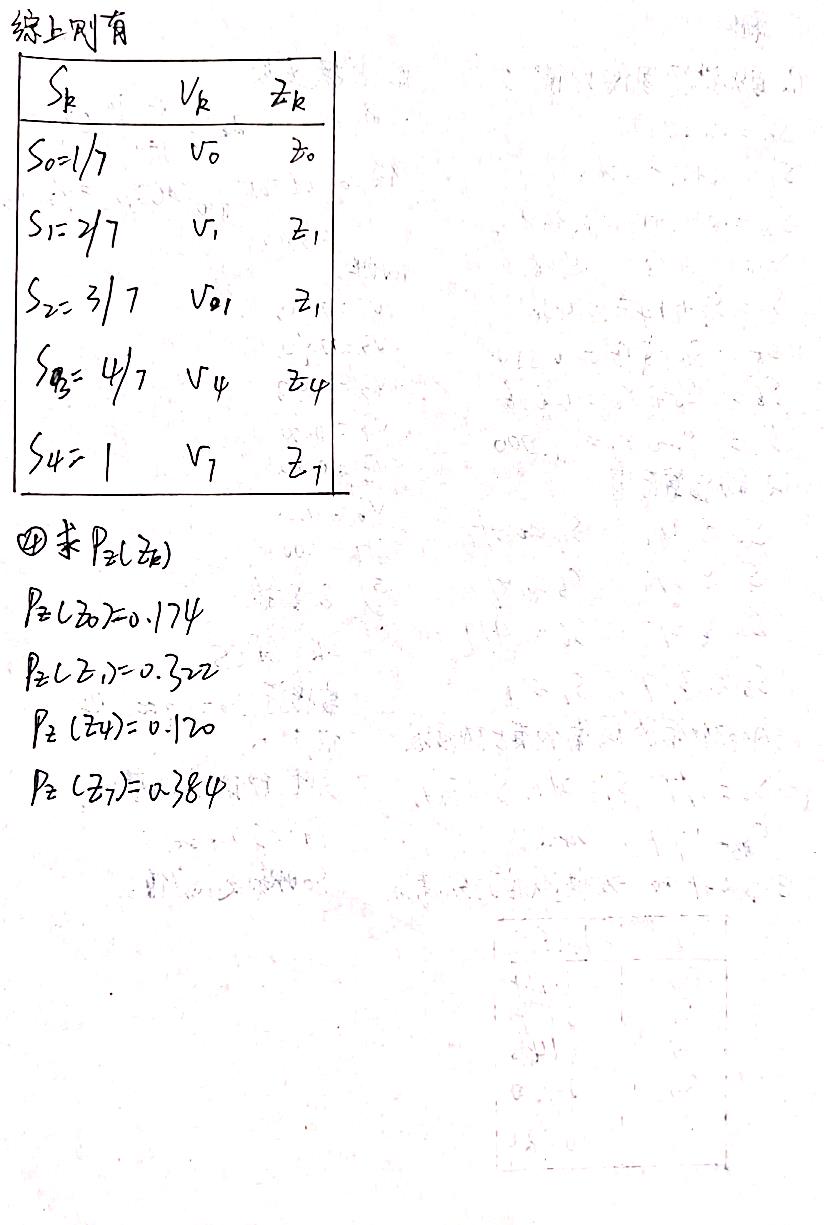 综上则有
Sk Vk Zk
S0=1/7 V0 Z0
S1=2/7 V1 Z1
S2=3/7 V1 Z1
S3=4/7 V4 Z4
S4=1 V7 Z7
④求Pz(Zk)
Pz(Z0)=0.174
Pz(Z1)=0.322
Pz(Z4)=0.120
Pz(Z7)=0.384